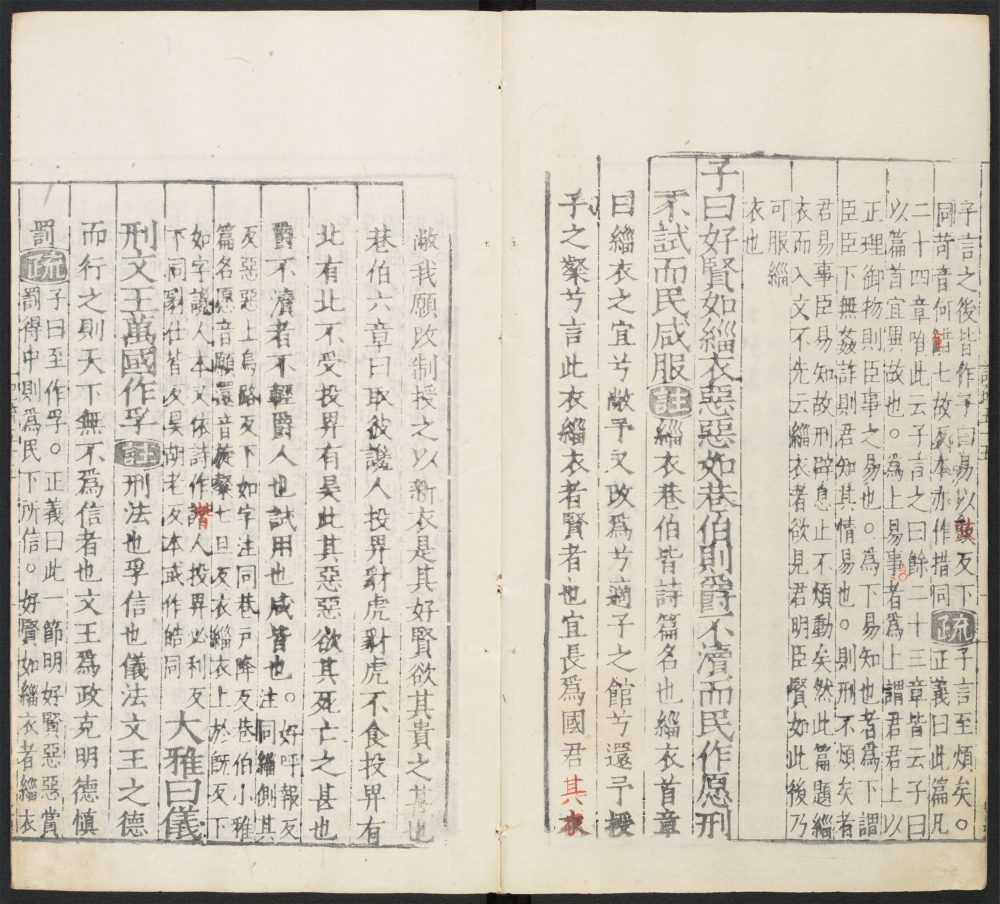 子言之後皆作子曰易以豉反下
同苛音何錯七故反本亦作措同
疏
子言至煩矣。
正義曰此篇凡
二十四章唯此云子言之曰餘二十三章皆云子曰
以篇首宜異故也。爲上易事者爲上謂君君上以
正理御物則臣事之易也。爲下易知也者爲下謂
臣臣下無姦詐則君知其情易也。則刑不煩矣者
君易事臣易知故刑辟息止不煩動矣然此篇題緇
衣而入文不先云緇衣者欲見君明臣賢如此後乃
可服緇
衣也
子曰好賢如緇衣惡惡如巷伯則爵不瀆而民作愿刑
不試而民咸服註緇衣巷伯皆詩篇名也緇衣首章
曰緇衣之宜兮敝予又改爲兮適子之館兮還予授
子之粲兮言此衣緇衣者賢者也宜長爲國君其衣
敝我願改制授之以新衣是其好賢欲其貴之甚也
巷伯六章曰取彼讒人投畀豺虎豺虎不食投畀有
北有北不受投畀有昊此其惡惡欲其死亡之甚也
爵不瀆者不輕爵人也試用也咸皆也。
好呼報反
注同緇側其
反惡惡上烏路反下如字注同巷戶降反巷伯小雅
篇名愿音願還音旋粲七旦反衣緇衣上於既反下
如字讒人本又依詩作譖人投畀必利反
下同豺仕皆反昊胡老反本或作皓同
大雅曰儀
刑文王萬國作孚註刑法也孚信也儀法文王之德
而行之則天下無不爲信者也文王爲政克明德慎
罰疏
子曰至作孚。正義曰此一節明好賢惡惡賞
罰得中則爲民下所信。好賢如緇衣者緇衣